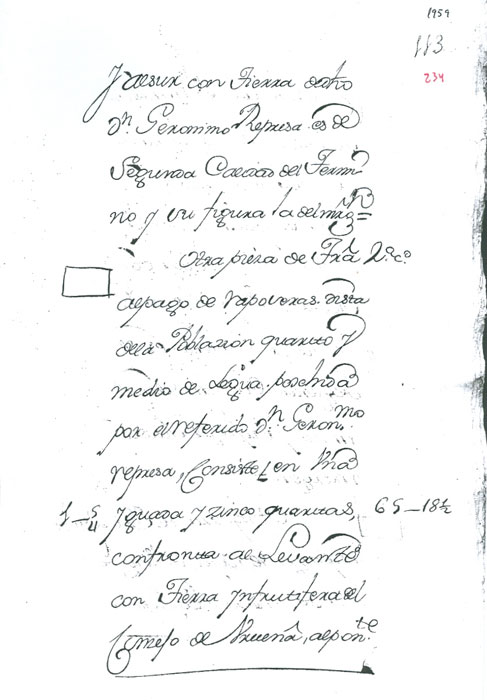 1959
113
234
Y al sur con Tierra de dho
Dn Geronimo Represa es de
Segunda Calidad del Termi
no y su figura la del mrgn=
Otra pieza de Trâ 2.ª c.
al pago de raposeras dista
de la Poblazion quarto y
medio de Legua posehida
por el referido Dn. Geron.mo
represa, Consiste en Una
1_5/4 Yguada y zinco quartas, 65_18½
confronta al Levante
con Tierra ynfrutifera del
Conzejo de Urueña, al pon.te